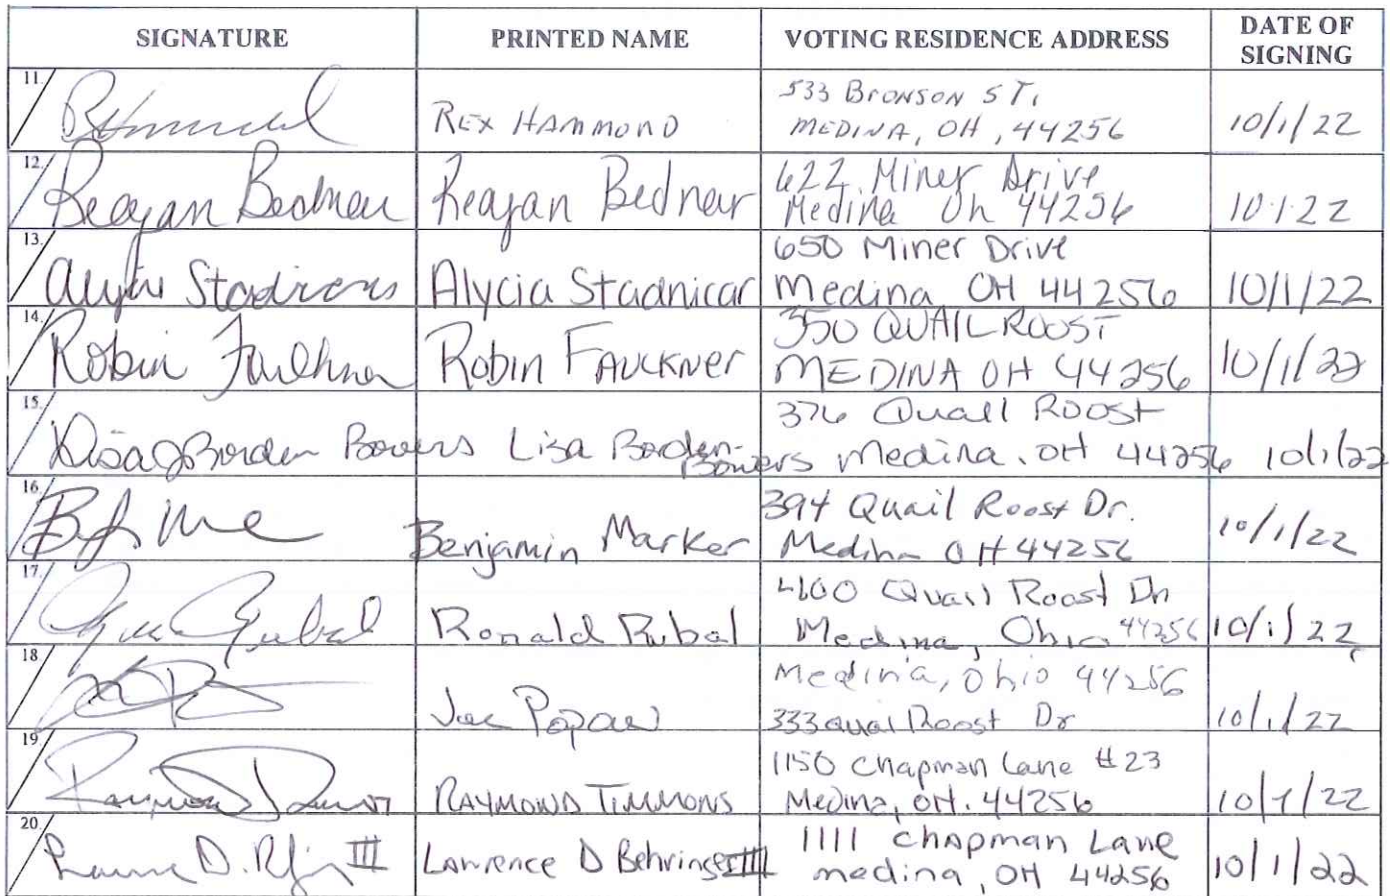 SIGNATURE PRINTED NAME VOTING RESIDENCE ADDRESS DATE OF SIGNING
11. REX HAMMOND 533 BRONSON ST.
MEDINA, OH, 44256 10/1/22
12. Reagan Bednar Reagan Bednar 622 Miner Drive
Medina Oh 44256 10·1·22
13. Alycia Stadnicar 650 Miner Drive
Medina OH 44256 10/1/22
14. Robin Faulkner Robin FAUCKNER 350 QUAIL ROOST
MEDINA OH 44256 10/1/22
15. Lisa J Borden Bowers Lisa Borden-Bowers 376 Quail Roost
Medina, OH 44256 10/1/22
16. Benjamin Marker 394 Quail Roost Dr.
Medina OH 44256 10/1/22
17. Ronald Rubal Quail Roost Dr
Medina, Ohio 44256 10/1/22
18. Joe Medina, Ohio 44256
333 Quail Roost Dr 10/1/22
19. RAYMOND TIMMONS 1150 Chapman Lane #23
Medina, OH. 44256 10/1/22
20. D. III Lawrence D Behringer III 1111 Chapman Lane
medina, OH 44256 10/1/22